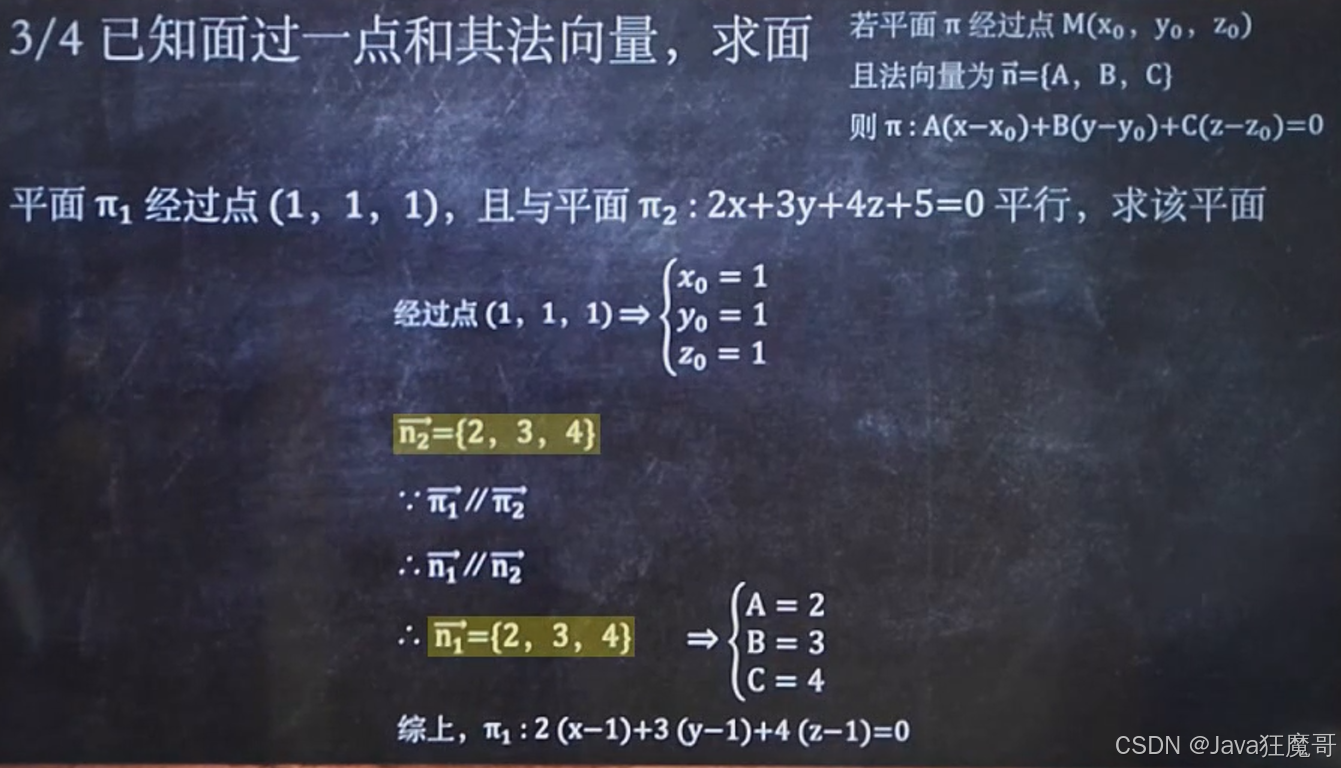 3/4 已知面过一点和其法向量，求面
若平面 π 经过点 M(x₀，y₀，z₀)
且法向量为 n⃗={A，B，C}
则 π : A(x−x₀)+B(y−y₀)+C(z−z₀)=0
平面 π₁ 经过点 (1，1，1)，且与平面 π₂ : 2x+3y+4z+5=0 平行，求该平面
经过点 (1，1，1)⇒{x₀ = 1
y₀ = 1
z₀ = 1
n₂⃗={2，3，4}
∵ π₁⃗ // π₂⃗
∴ n₁⃗ // n₂⃗
∴ n₁⃗={2，3，4} ⇒{A = 2
B = 3
C = 4
综上，π₁ : 2 (x−1)+3 (y−1)+4 (z−1)=0
CSDN @Java狂魔哥